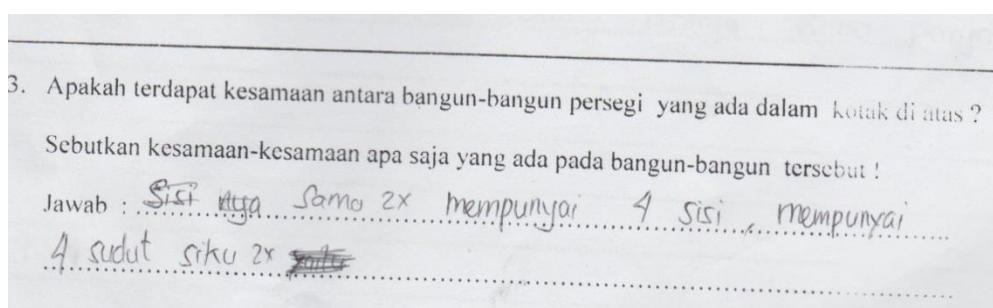 3. Apakah terdapat kesamaan antara bangun-bangun persegi yang ada dalam kotak di atas ?
Sebutkan kesamaan-kesamaan apa saja yang ada pada bangun-bangun tersebut !
Jawab : Sisi nya Sama 2x mempunyai 4 sisi, mempunyai
4 sudut siku 2x